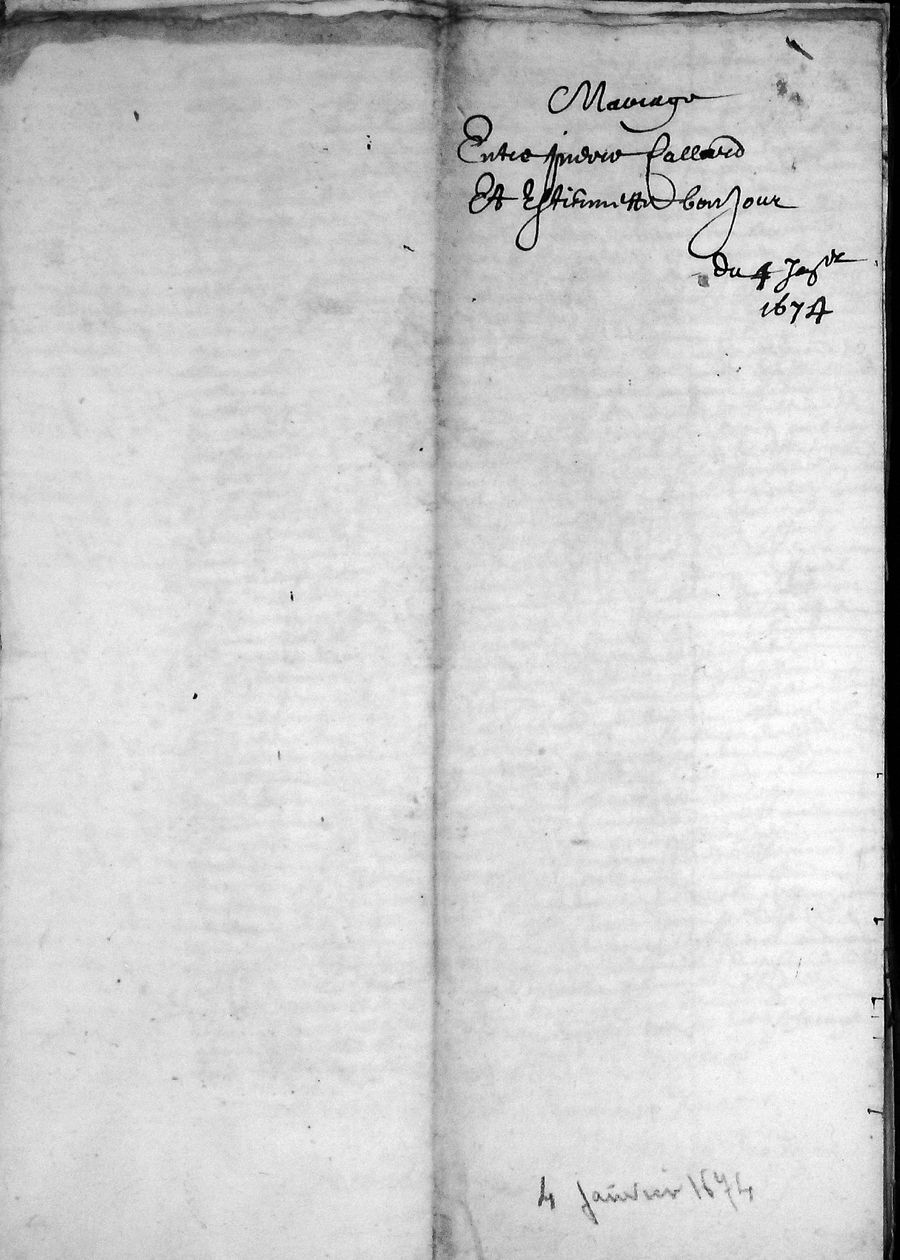 Mariage
Entre pierre Collard
Et Estiennette bonJour
du 4 Jaer
1674
4 janvier 1674